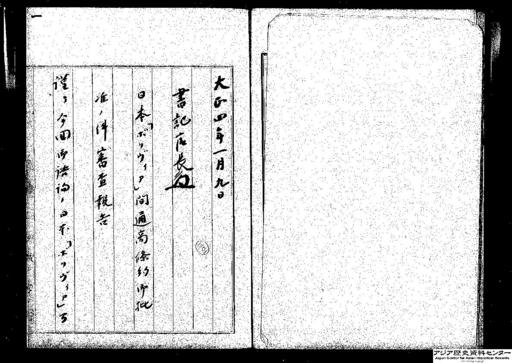 一
大正四年一月九日
書記官長
日本「ボリヴィア」間通商條約御批
准ノ件審査報告
謹テ今回御諮詢ノ日本「ボリヴィア」間
アジア歴史資料センター
Japan Center for Asian Historical Records